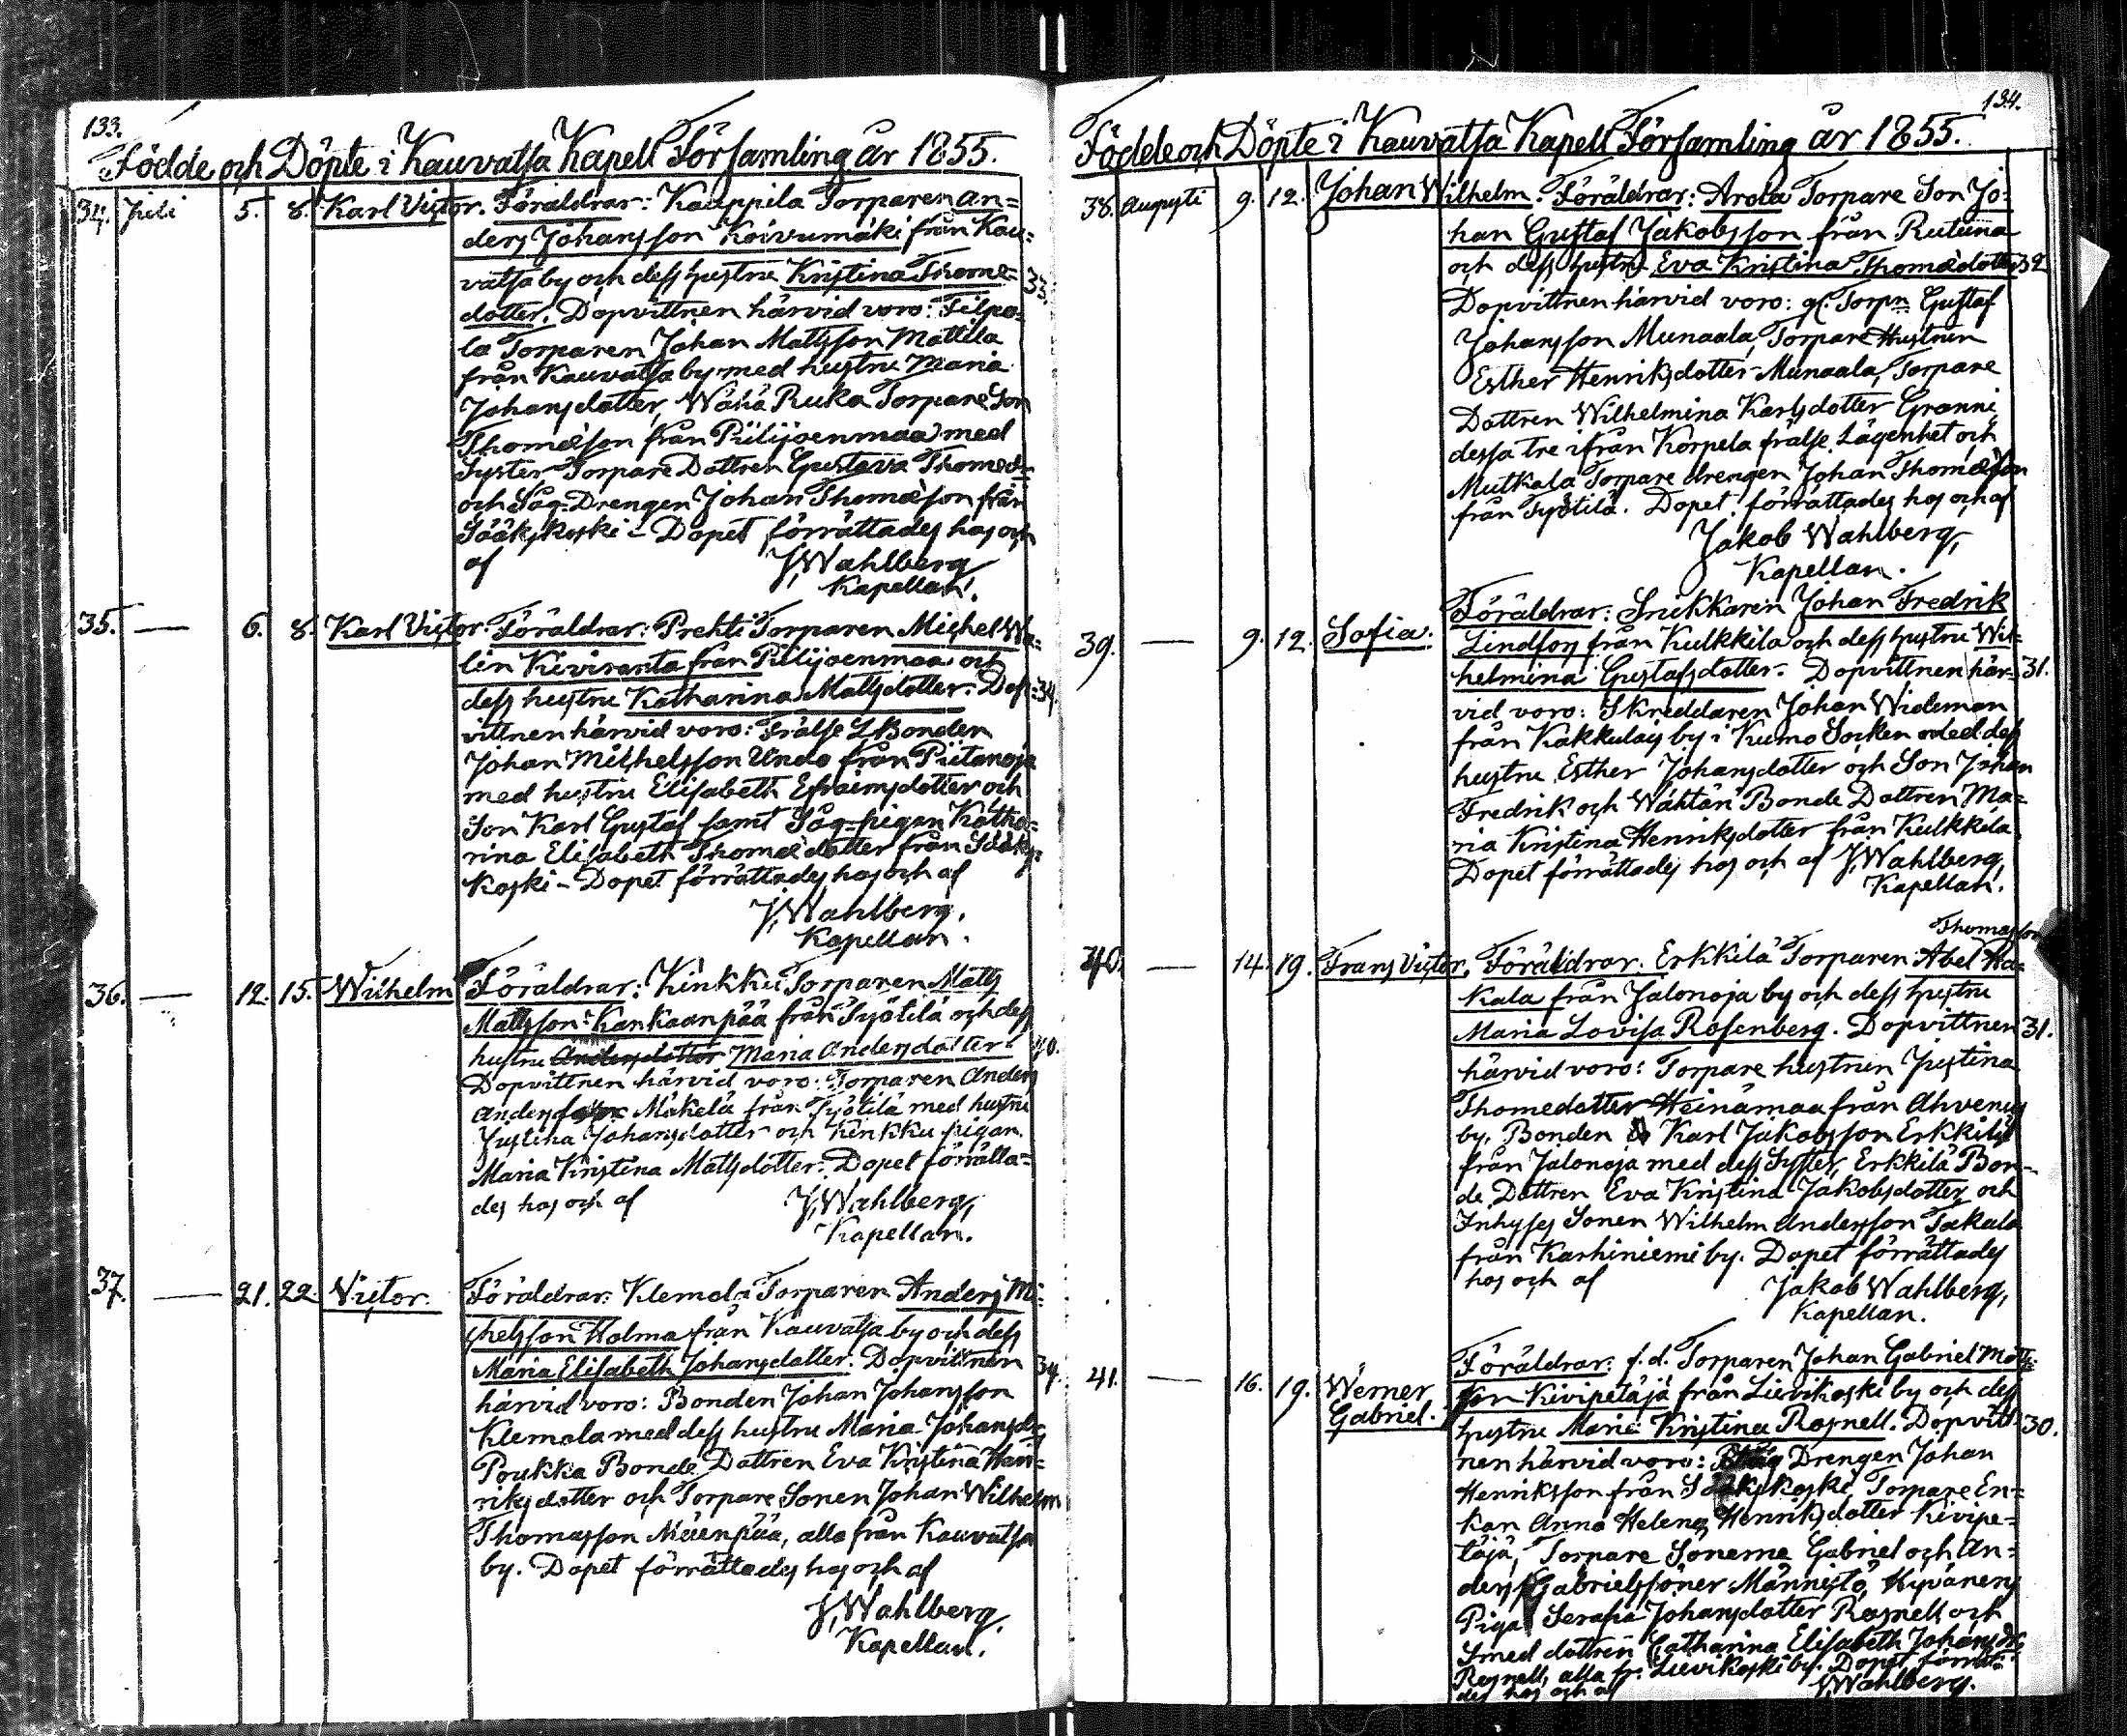 133.
Födde och Döpte i Kauvatsa Kapell Församling år 1855.
34. Juli 5. 8. Karl Victor. Föräldrar: Kauppila Torparen An=
ders Johansson Koivumäki från Kau=
vatsa by och dess hustru Kristina Thome=
dotter. Dopvittnen härvid voro: Filpo= 33.
la Torparen Johan Mattsson Mattila
från Kauvatsa by med hustru Maria
Johansdotter, Wähä Ruka Torpare Son
Thomæson från Piilijoenmaa med
Syster Torpare Dottren Gustava Thomed:r
och Såg-Drengen Johan Thomæson från
Sääkskoski - Dopet förrättades hos och
af J. Wahlberg
Kapellan.
35. — 6. 8. Karl Victor. Föräldrar: Prehti Torparen Michel Wa=
lin Kiviranta från Piilijoenmaa och
dess hustru Katharina Mattsdotter. Dop= 34.
vittnen härvid voro: Frälse L Bonden
Johan Michelsson Undo från Piitanoja
med hustru Elisabeth Efraimsdotter och
Son Karl Gustaf samt Såg-pigan Katha=
rina Elisabeth Thomædotter från Sääks=
koski - Dopet förrättades hos och af
J. Wahlberg.
Kapellan.
36. — 12. 15. Wilhelm Föräldrar: Kinkku Torparen Matts
Mattsson Kankaanpää från Työtilä och dess
hustru Andersdotter Maria Andersdotter. 40.
Dopvittnen härvid voro: Torparen Anders
Andersson Mäkelä från Työtilä med hustru
Justina Johansdotter och Kinkku pigan
Maria Kristina Mattsdotter. Dopet förrätta=
des hos och af J. Wahlberg,
Kapellan.
37. — 21. 22. Victor. Föräldrar: Klemola Torparen Anders Mi=
chelsson Holma från Kauvatsa by och dess
Maria Elisabeth Johansdotter. Dopvittnen 34.
härvid voro: Bonden Johan Johansson
Klemola med dess hustru Maria Johansdr
Poukka Bonde Dottren Eva Kristina Hen=
riksdotter och Torpare Sonen Johan Wilhelm
Thomasson Mäenpää, alla från Kauvatsa
by. Dopet förrättades hos och af
J. Wahlberg,
Kapellan.
134.
Födde och Döpte i Kauvatsa Kapell Församling år 1855.
38. Augusti 9. 12. Johan Wilhelm. Föräldrar: Arola Torpare Son Jo=
han Gustaf Jakobsson från Rutuna
och dess hustru Eva Kristina Thomædotter 32
Dopvittnen härvid voro: gl. Torpn Gustaf
Johansson Munaala, Torpare Hustrun
Esther Henriksdotter Munaala, Torpare
Dottren Wilhelmina Karlsdotter Granni
dessa tre ifrån Korpela frälse Lägenhet och
Mutkala Torpare drengen Johan Thomæson
från Työtilä. Dopet förrättades hos och af
Jakob Wahlberg,
Kapellan.
39. — 9. 12. Sofia. Föräldrar: Snickaren Johan Fredrik
Lindfors från Kulkkila och dess hustru Wil=
helmina Gustafsdotter. Dopvittnen här= 31.
vid voro: Skreddaren Johan Wideman
från Kakkulais by i Kumo Socken med dess
hustru Esther Johansdotter och Son Johan
Fredrik och Wähtän Bonde Dottren Ma=
ria Kristina Henriksdotter från Kulkkila.
Dopet förrättades hos och af J. Wahlberg,
Kapellan.
Thomasson
40. — 14. 19. Frans Victor. Föräldrar. Erkkilä Torparen Abel Ha=
kala från Jalonoja by och dess hustru
Maria Lovisa Rosenberg. Dopvittnen 31.
härvid voro: Torpare hustrun Justina
Thomedotter Heinämaa från Ahvenus
by, Bonden Karl Jakobsson Erkkilä
från Jalonoja med dess Syster, Erkkilä Bon=
de Dottren Eva Kristina Jakobsdotter och
Inhyses Sonen Wilhelm Andersson Takala
från Karhiniemi by. Dopet förrättades
hos och af Jakob Wahlberg,
Kapellan.
41. — 16. 19. Werner Gabriel. Föräldrar: f.d. Torparen Johan Gabriel Matts=
son Kivipetäjä från Lievikoski by och dess
hustru Maria Kristina Rosnell. Dopvitt= 30.
nen härvid voro: Drengen Johan
Henriksson från Sääkskoski, Torpare En=
kan Anna Helena Henriksdotter Kivipe=
täjä, Torpare Sonerne Gabriel och An=
ders Gabrielssöner Männistö, Hyvänens
Piga Serafia Johansdotter Rosnell och
Smed dottren Catharina Elisabeth Johansdr
Rosnell, alla fr. Lievikoski by. Dopet förrätta=
des hos och af J. Wahlberg.